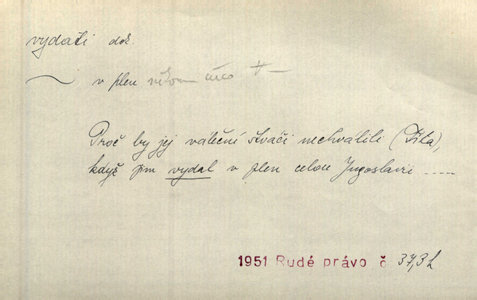 vydati dok.
v plen
Proč by jej váleční štváči nechválili (Tita),
když jim vydal v plen celou Jugoslavii .....
1951 Rudé právo č 37,3